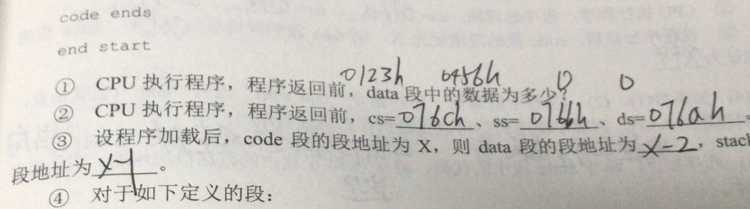 code ends
end start
0123h 0456h 0 0
① CPU 执行程序，程序返回前，data 段中的数据为多少？
② CPU 执行程序，程序返回前，cs=076ch、ss=076bh、ds=076ah。
③ 设程序加载后，code 段的段地址为 X，则 data 段的段地址为 X-2，stack
段地址为 X-1。
④ 对于如下定义的段：